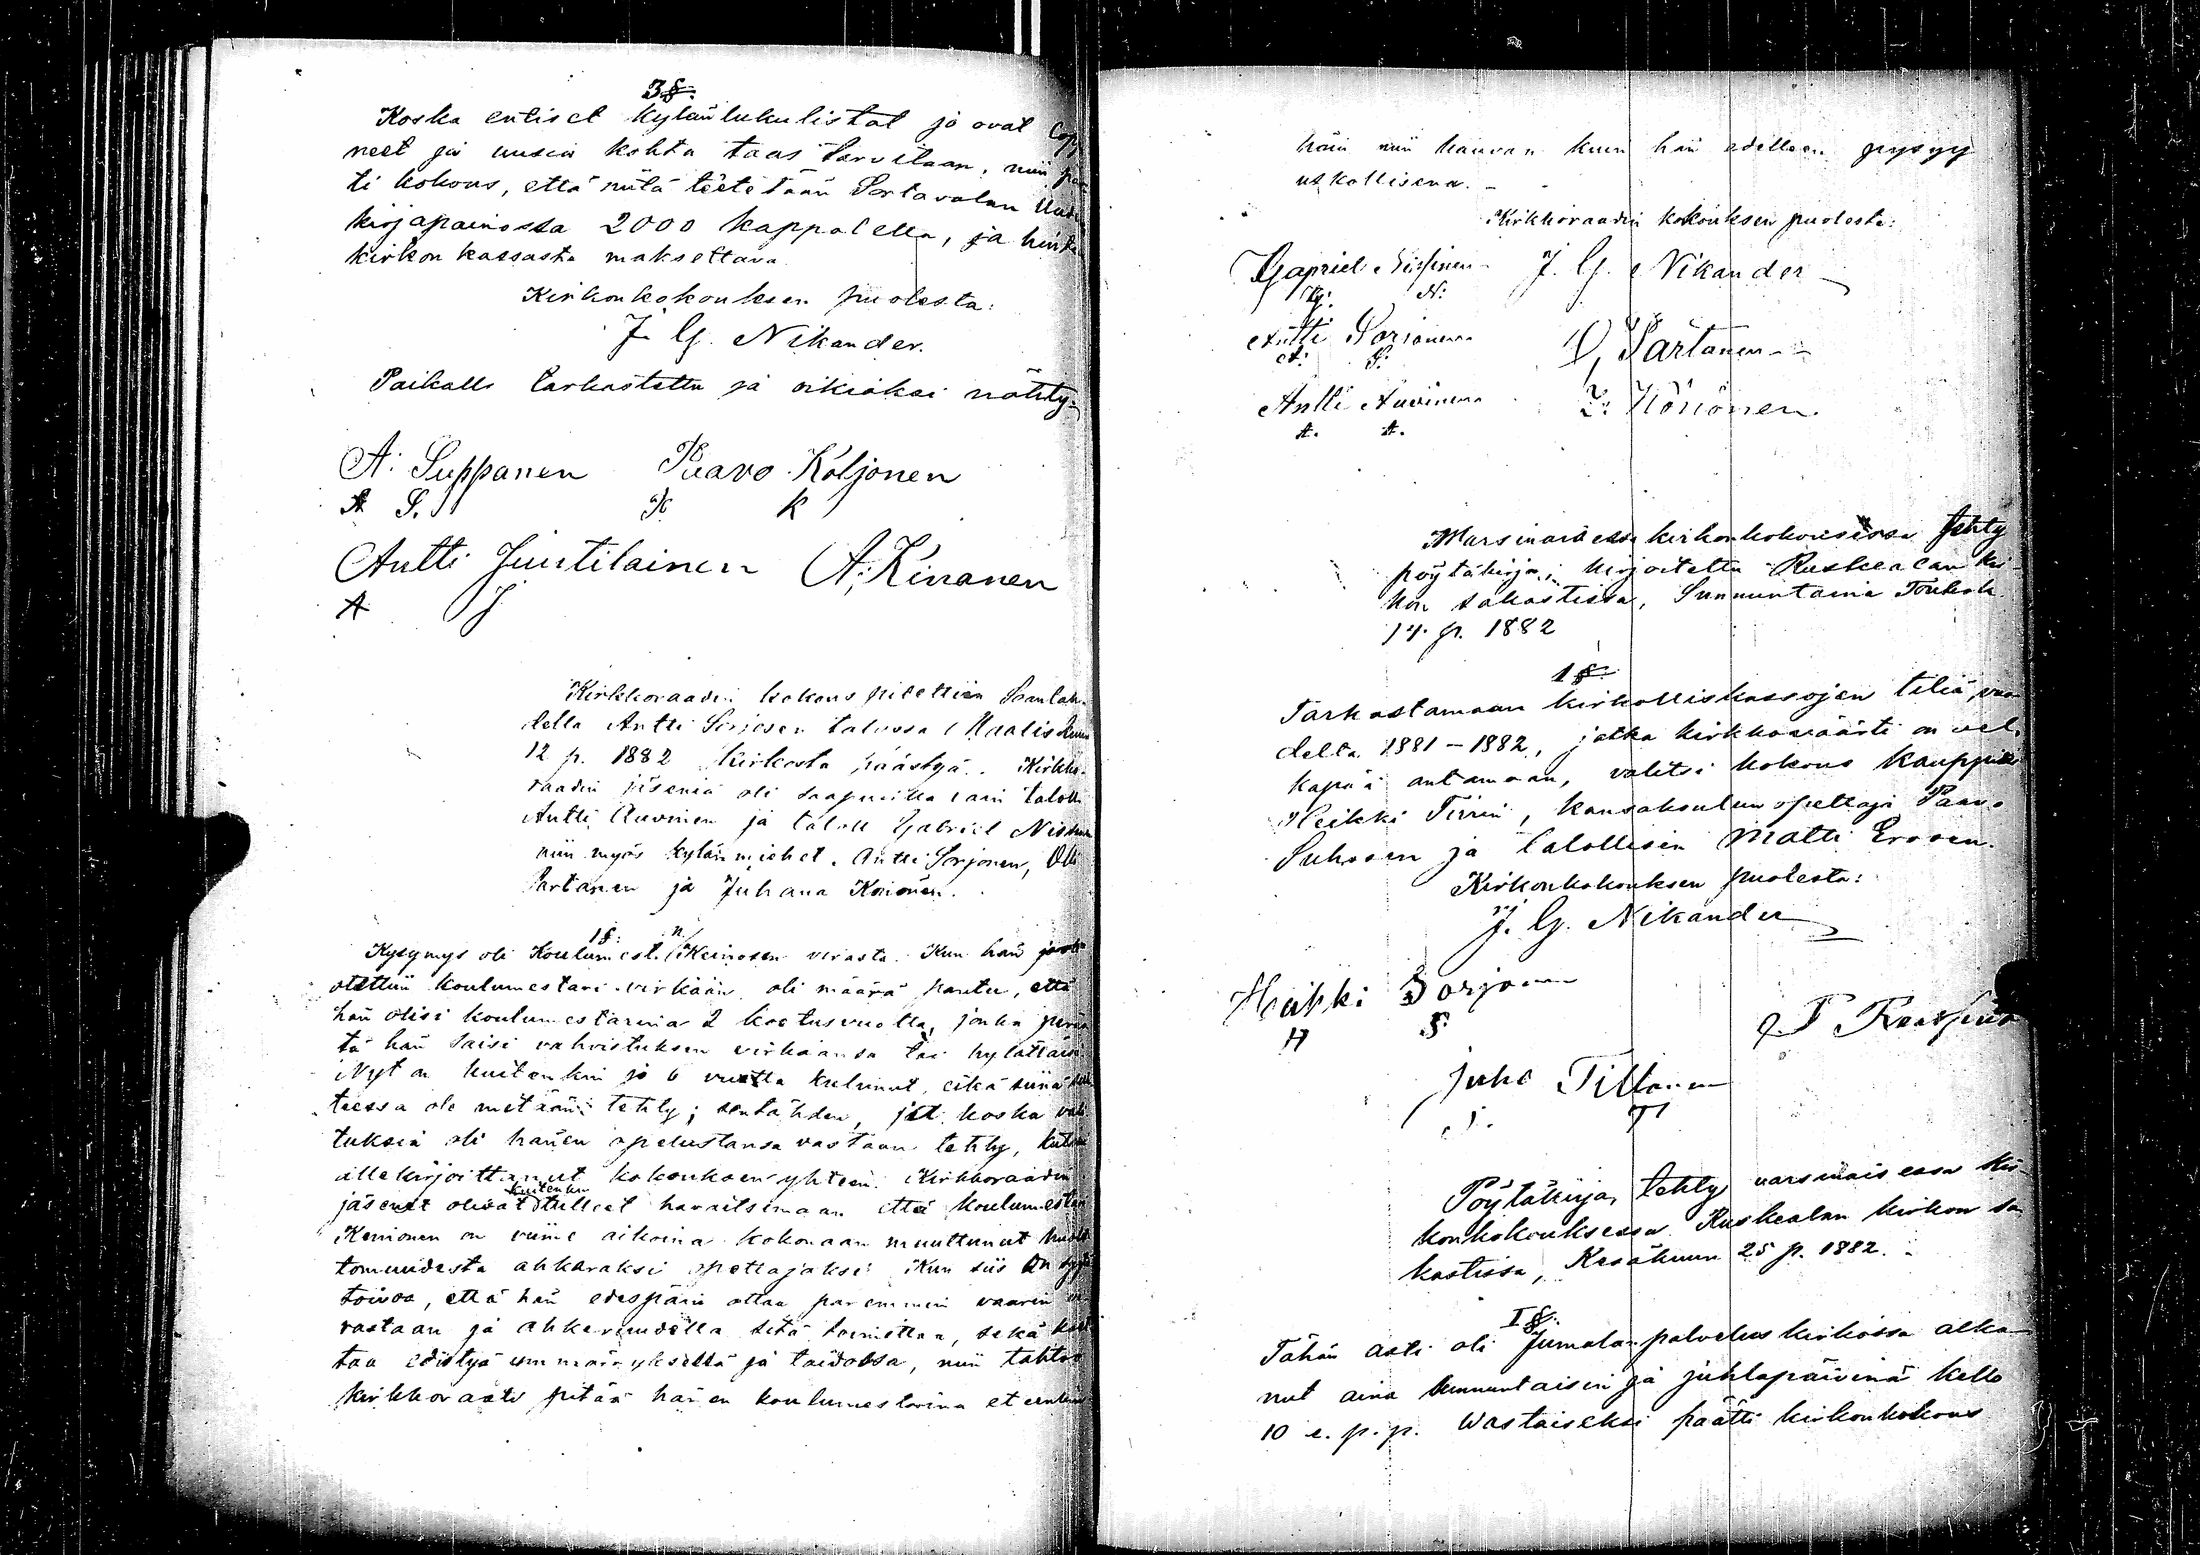 3 §.
Koska entiset kylänlukulistat jo ovat lop
neet ja uusia kohta taas tarvitaan, niin pää
ti kokous, että niitä teetetään Sortavalan Uude
kirjapainossa 2000 kappaletta, ja hinta
kirkon kassasta maksettava.
Kirkonkokouksen puolesta:
J. G. Nikander.
Paikalla tarkastettu ja oikiaksi nähty:
A: Suppanen Paavo Koljonen
A S. P K
Antti Juntilainen A; Kinanen
A J
Kirkkoraadin kokous pidettiin
della Antti Sorjosen talossa Maaliskuun
12 p. 1882 kirkosta päästyä. Kirkko-
raadin jäseniä oli saapuvilla vain taloll
Antti Auvinen ja taloll Gabriel Nissinen
niin myös kylänmiehet Antti Sorjonen, Olli
Partanen ja Juhana Könönen.
1 §.
Kysymys oli Koulumest. Keinosen virasta. Kun hän
otettiin koulumestari virkaan, oli määrä pantu, että
hän olisi koulumestarina 2 koetusvuotta, jonka peräs
tä hän saisi vahvistuksen virkaansa tai hylättäisi
Nyt on kuitenkin jo 6 vuotta kulunut eikä siinä suh
teessa ole mitään tehty; sentähden, ja koska vali
tuksia oli hänen opetustansa vastaan tehty, kutsui
allekirjoittanut kokouksen yhteen. Kirkkoraadin
jäsenet olivat kuitenkin tulleet havaitsemaan että koulumestari
Keinonen on viime aikoina kokonaan muuttunut huolet
tomuudesta ahkeraksi opettajaksi. Kun siis on syytä
toivoa, että hän edespäin ottaa paremmin vaarin
vastaan ja ahkeruudella sitä toimittaa, sekä koet
taa edistyä ymmärryksessä ja taidossa, niin tahtoo
kirkkoraati pitää hänen koulumestarina eteenkin
häin niin kauvan kuin hän edelleen pysyy
uskollisena. -
Kirkkoraadin kokouksen puolesta:
Gapriel Nissinen J. G. Nikander
G: N:
Antti Sorjonen O, Partanen
A: S:
Antti Auvinen J: Könönen.
A. A.
Warsinaisessa kirkonkokouksessa tehty
pöytäkirja, kirjoitettu Ruskealan kir-
kon sakastissa, Sunnuntaina Toukok.
14 p. 1882
1 §.
Tarkastamaan kirkolliskassojen tiliä, vuo
delta 1881-1882, jotka kirkkoväärti on vel-
kapää antamaan, valitsi kokous kauppias
Heikki Tirrin, kansakoulun opettaja Paavo
Suhosen ja talollisen Matti Erosen.
Kirkonkokouksen puolesta:
J. G. Nikander
Heikki Sorjonen
H S
Juho Tillanen
J. T
Pöytäkirja, tehty varsinaisessa kir-
konkokouksessa Ruskealan kirkon sa
kastissa, Kesäkuun 25 p. 1882.
I §.
Tähän asti oli Jumalanpalvelus kirkossa alka
nut aina sunnuntaisin ja juhlapäivinä kello
10 e. p. p. Wastaiseksi päätti kirkonkokous